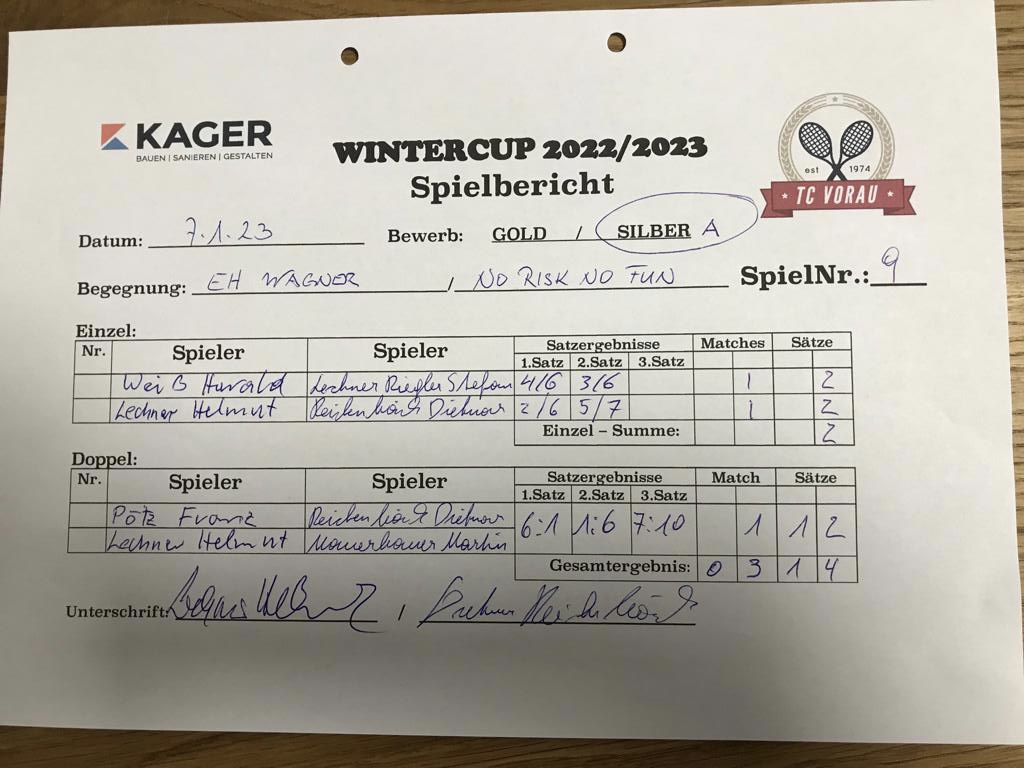 KAGER
BAUEN | SANIEREN | GESTALTEN
WINTERCUP 2022/2023
Spielbericht
est 1974
TC VORAU
Datum: 7.1.23 Bewerb: GOLD / SILBER A
Begegnung: EH WAGNER / NO RISK NO FUN SpielNr.: 9
Einzel:
Nr. Spieler Spieler Satzergebnisse Matches Sätze
1.Satz 2.Satz 3.Satz
Weiß Harald Lechner Riegler Stefan 4/6 3/6 1 2
Lechner Helmut Dietmar 2/6 5/7 1 2
Einzel – Summe: 2
Doppel:
Nr. Spieler Spieler Satzergebnisse Match Sätze
1.Satz 2.Satz 3.Satz
Pötz Franz Dietmar 6:1 1:6 7:10 1 1 2
Lechner Helmut Martin
Gesamtergebnis: 0 3 1 4
Unterschrift: /